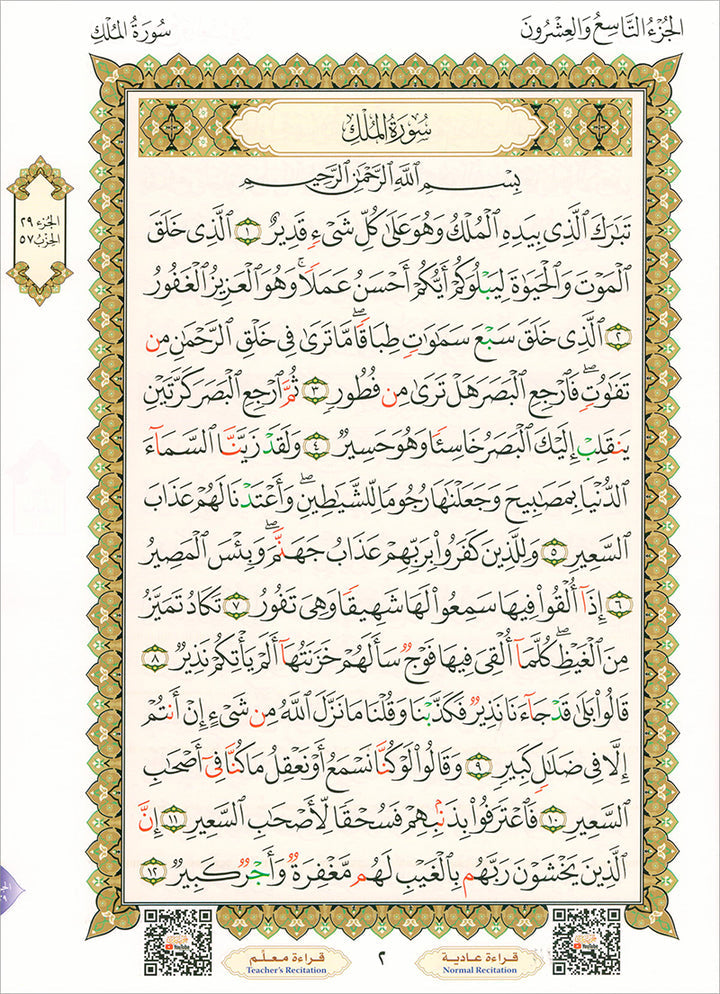 الجُزْءُ التَّاسِعُ وَالعِشْرُونَ
سُورَةُ المُلْكِ
سُورَةُ المُلْكِ
الجزء ٢٩
الحزب ٥٧
بِسْمِ ٱللَّهِ ٱلرَّحْمَٰنِ ٱلرَّحِيمِ
تَبَارَكَ ٱلَّذِى بِيَدِهِ ٱلْمُلْكُ وَهُوَ عَلَىٰ كُلِّ شَىْءٍ قَدِيرٌ ١ ٱلَّذِى خَلَقَ
ٱلْمَوْتَ وَٱلْحَيَوٰةَ لِيَبْلُوَكُمْ أَيُّكُمْ أَحْسَنُ عَمَلًا ۚ وَهُوَ ٱلْعَزِيزُ ٱلْغَفُورُ
٢ ٱلَّذِى خَلَقَ سَبْعَ سَمَٰوَاتٍ طِبَاقًا ۖ مَّا تَرَىٰ فِى خَلْقِ ٱلرَّحْمَٰنِ مِن
تَفَاوُتٍ ۖ فَٱرْجِعِ ٱلْبَصَرَ هَلْ تَرَىٰ مِن فُطُورٍ ٣ ثُمَّ ٱرْجِعِ ٱلْبَصَرَ كَرَّتَيْنِ
يَنقَلِبْ إِلَيْكَ ٱلْبَصَرُ خَاسِئًا وَهُوَ حَسِيرٌ ٤ وَلَقَدْ زَيَّنَّا ٱلسَّمَآءَ
ٱلدُّنْيَا بِمَصَابِيحَ وَجَعَلْنَٰهَا رُجُومًا لِّلشَّيَاطِينِ ۖ وَأَعْتَدْنَا لَهُمْ عَذَابَ
ٱلسَّعِيرِ ٥ وَلِلَّذِينَ كَفَرُوا۟ بِرَبِّهِمْ عَذَابُ جَهَنَّمَ ۖ وَبِئْسَ ٱلْمَصِيرُ
٦ إِذَآ أُلْقُوا۟ فِيهَا سَمِعُوا۟ لَهَا شَهِيقًا وَهِىَ تَفُورُ ٧ تَكَادُ تَمَيَّزُ
مِنَ ٱلْغَيْظِ ۖ كُلَّمَآ أُلْقِىَ فِيهَا فَوْجٌ سَأَلَهُمْ خَزَنَتُهَآ أَلَمْ يَأْتِكُمْ نَذِيرٌ ٨
قَالُوا۟ بَلَىٰ قَدْ جَآءَنَا نَذِيرٌ فَكَذَّبْنَا وَقُلْنَا مَا نَزَّلَ ٱللَّهُ مِن شَىْءٍ إِنْ أَنتُمْ
إِلَّا فِى ضَلَٰلٍ كَبِيرٍ ٩ وَقَالُوا۟ لَوْ كُنَّا نَسْمَعُ أَوْ نَعْقِلُ مَا كُنَّا فِىٓ أَصْحَابِ
ٱلسَّعِيرِ ١٠ فَٱعْتَرَفُوا۟ بِذَنۢبِهِمْ فَسُحْقًا لِّأَصْحَابِ ٱلسَّعِيرِ ١١ إِنَّ
ٱلَّذِينَ يَخْشَوْنَ رَبَّهُم بِٱلْغَيْبِ لَهُم مَّغْفِرَةٌ وَأَجْرٌ كَبِيرٌ ١٢
قراءة عادية
Normal Recitation
٢
قراءة معلّم
Teacher's Recitation
YouTube
YouTube